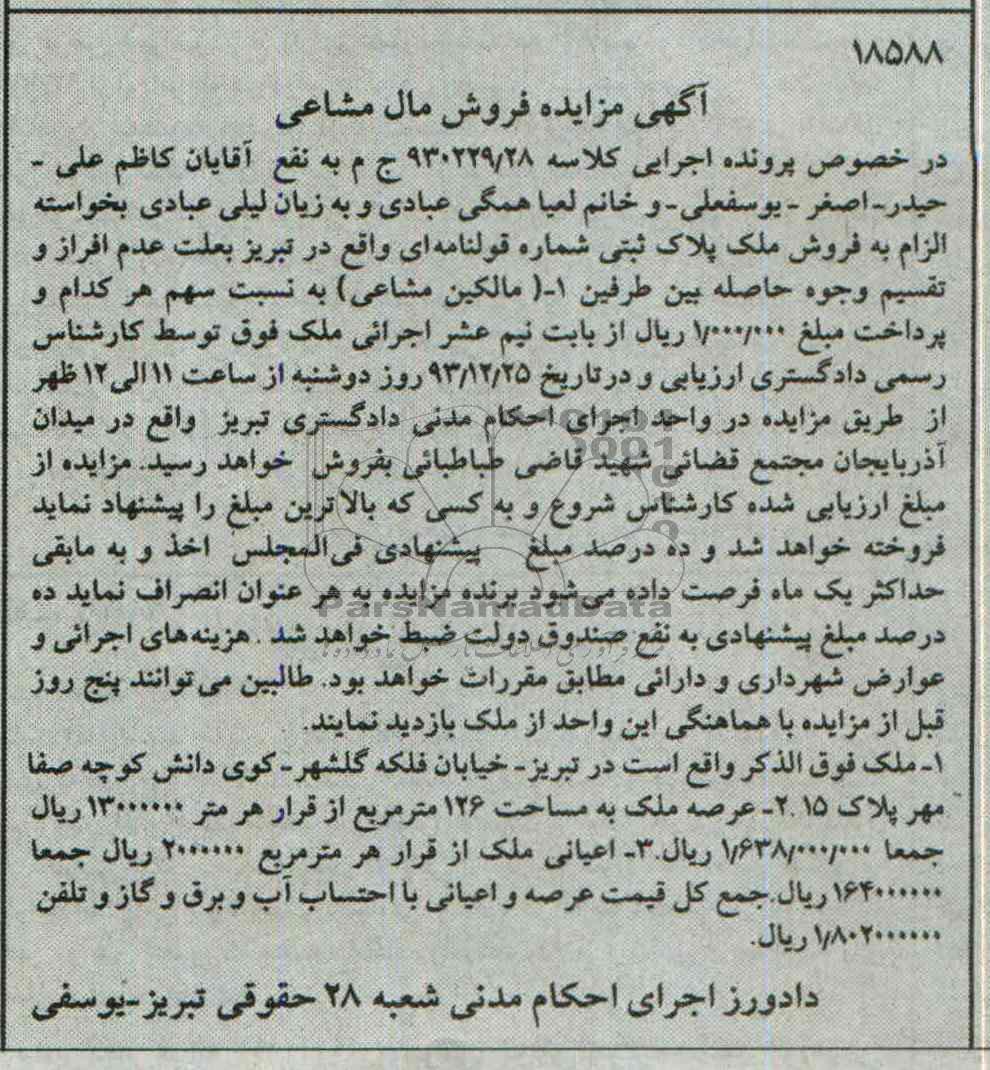 ۱۸۵۸۸
آگهی مزایده فروش مال مشاعی
در خصوص پرونده اجرایی کلاسه ۹۳۰۲۲۹/۲۸ ج م به نفع آقایان کاظم علی -
حیدر-اصغر -یوسفعلی-و خانم لعیا همگی عبادی و به زیان لیلی عبادی بخواسته
الزام به فروش ملک پلاک ثبتی شماره قولنامه‌ای واقع در تبریز بعلت عدم افراز و
تقسیم وجوه حاصله بین طرفین ۱-( مالکین مشاعی) به نسبت سهم هر کدام و
پرداخت مبلغ ۱/۰۰۰/۰۰۰ ریال از بابت نیم عشر اجرائی ملک فوق توسط کارشناس
رسمی دادگستری ارزیابی و درتاریخ ۹۳/۱۲/۲۵ روز دوشنبه از ساعت ۱۱ الی ۱۲ ظهر
از طریق مزایده در واحد اجرای احکام مدنی دادگستری تبریز واقع در میدان
آذربایجان مجتمع قضائی شهید قاضی طباطبائی بفروش خواهد رسید. مزایده از
مبلغ ارزیابی شده کارشناس شروع و به کسی که بالاترین مبلغ را پیشنهاد نماید
فروخته خواهد شد و ده درصد مبلغ پیشنهادی فی‌المجلس اخذ و به مابقی
حداکثر یک ماه فرصت داده می‌شود برنده مزایده به هر عنوان انصراف نماید ده
ParsNamadData
درصد مبلغ پیشنهادی به نفع صندوق دولت ضبط خواهد شد . هزینه‌های اجرائی و
عوارض شهرداری و دارائی مطابق مقررات خواهد بود. طالبین می‌توانند پنج روز
قبل از مزایده با هماهنگی این واحد از ملک بازدید نمایند.
۱- ملک فوق الذکر واقع است در تبریز - خیابان فلکه گلشهر - کوی دانش کوچه صفا
مهر پلاک ۱۵ .۲- عرصه ملک به مساحت ۱۲۶ مترمربع از قرار هر متر ۱۳۰۰۰۰۰۰ ریال
جمعا ۱/۶۳۸/۰۰۰/۰۰۰ ریال.۳- اعیانی ملک از قرار هر مترمربع ۲۰۰۰۰۰۰ ریال جمعا
۱۶۴۰۰۰۰۰۰ ریال.جمع کل قیمت عرصه و اعیانی با احتساب آب و برق و گاز و تلفن
۱/۸۰۲۰۰۰۰۰۰ ریال.
دادورز اجرای احکام مدنی شعبه ۲۸ حقوقی تبریز-یوسفی